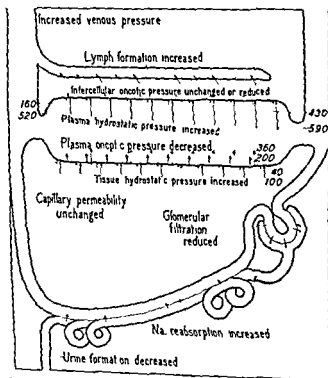 Increased venous pressure
Lymph formation increased
Intercellular oncotic pressure unchanged or reduced
160
520
430
590
Plasma hydrostatic pressure increased
Plasma oncotic pressure decreased
360
200
Tissue hydrostatic pressure increased
40
100
Capillary permeability
unchanged
Glomerular
filtration
reduced
Na. reabsorption increased
Urine formation decreased